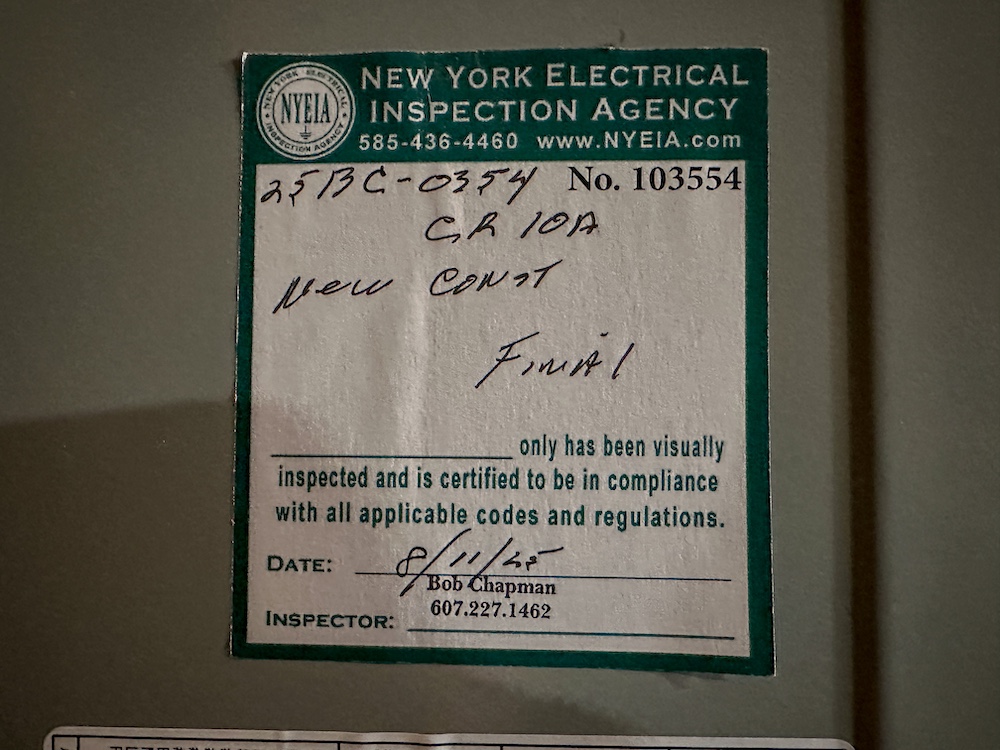 NEW YORK ELECTRICAL
INSPECTION AGENCY
NEW YORK ELECTRICAL
NYEIA
INSPECTION AGENCY
585-436-4460 www.NYEIA.com
25BC-0354 No. 103554
GR 10A
New CONST
FinAl
only has been visually
inspected and is certified to be in compliance
with all applicable codes and regulations.
DATE: 8/11/25
Bob Chapman
607.227.1462
INSPECTOR: